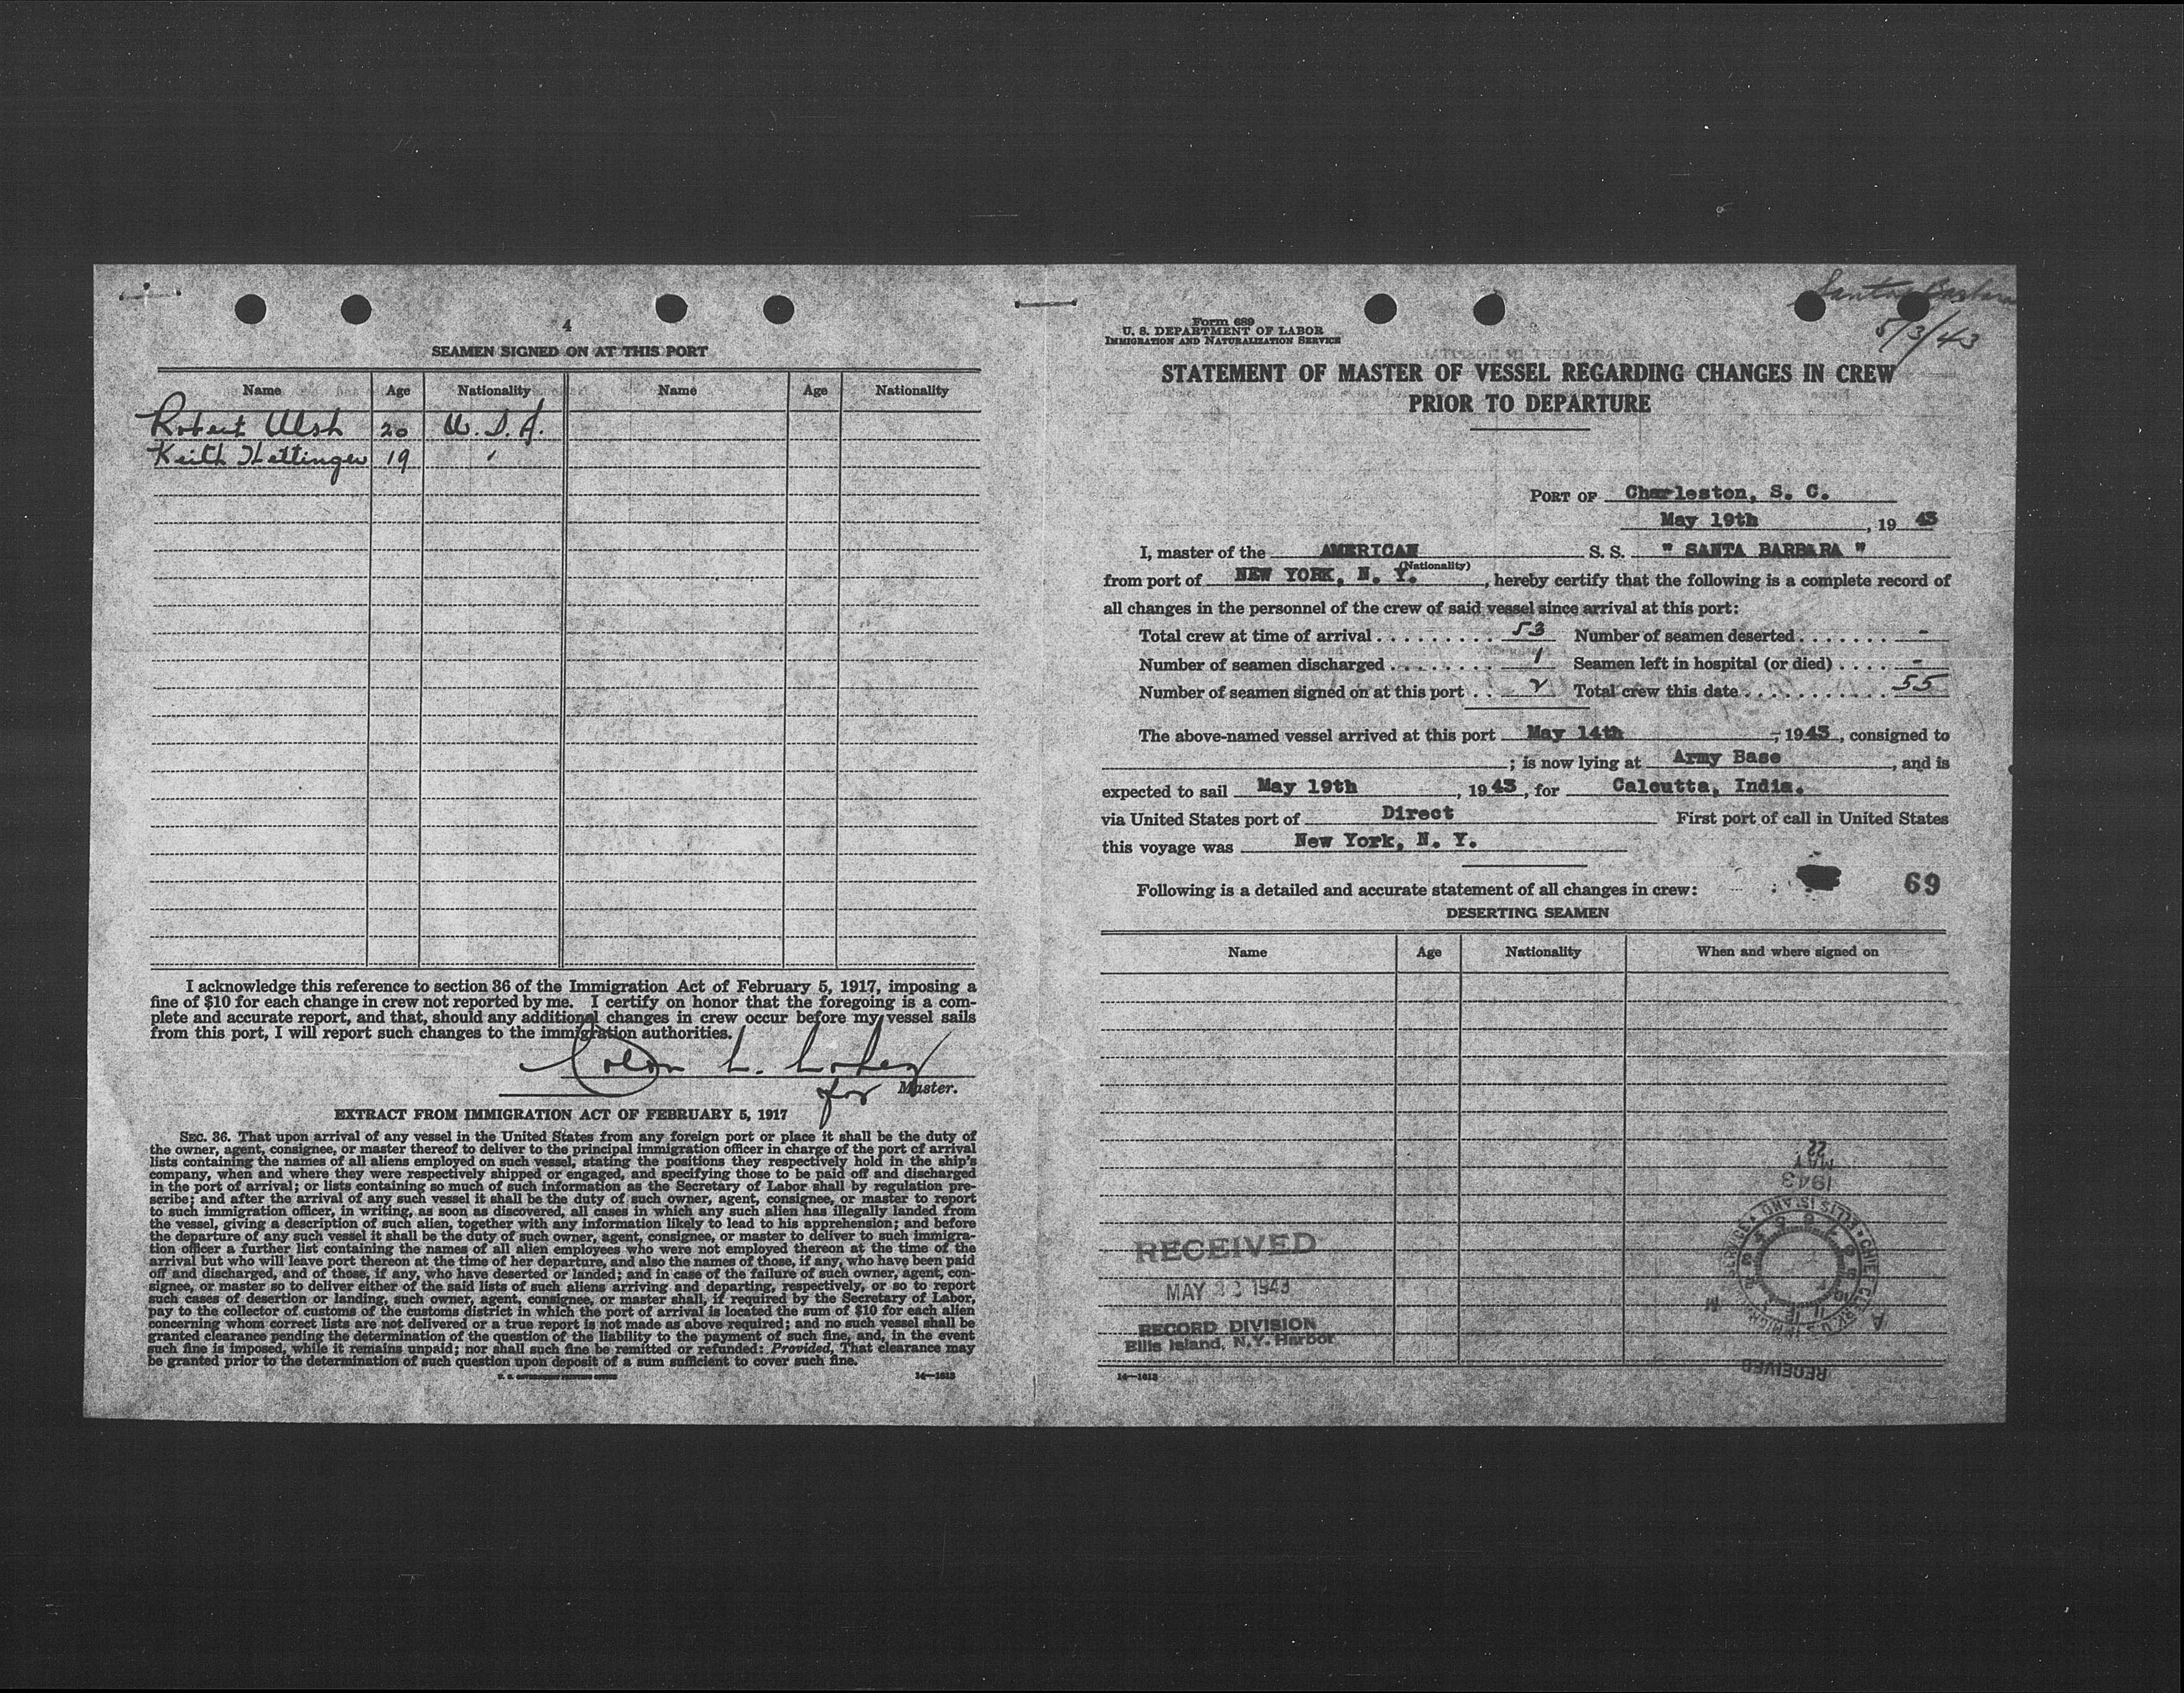 4
SEAMEN SIGNED ON AT THIS PORT
Name Age Nationality Name Age Nationality
Robert Ulsh 20 U. S. A.
Keith Hettinger 19 "
I acknowledge this reference to section 36 of the Immigration Act of February 5, 1917, imposing a
fine of $10 for each change in crew not reported by me. I certify on honor that the foregoing is a com-
plete and accurate report, and that, should any additional changes in crew occur before my vessel sails
from this port, I will report such changes to the immigration authorities.
for Master.
EXTRACT FROM IMMIGRATION ACT OF FEBRUARY 5, 1917
SEC. 36. That upon arrival of any vessel in the United States from any foreign port or place it shall be the duty of
the owner, agent, consignee, or master thereof to deliver to the principal immigration officer in charge of the port of arrival
lists containing the names of all aliens employed on such vessel, stating the positions they respectively hold in the ship's
company, when and where they were respectively shipped or engaged, and specifying those to be paid off and discharged
in the port of arrival; or lists containing so much of such information as the Secretary of Labor shall by regulation pre-
scribe; and after the arrival of any such vessel it shall be the duty of such owner, agent, consignee, or master to report
to such immigration officer, in writing, as soon as discovered, all cases in which any such alien has illegally landed from
the vessel, giving a description of such alien, together with any information likely to lead to his apprehension; and before
the departure of any such vessel it shall be the duty of such owner, agent, consignee, or master to deliver to such immigra-
tion officer a further list containing the names of all alien employees who were not employed thereon at the time of the
arrival but who will leave port thereon at the time of her departure, and also the names of those, if any, who have been paid
off and discharged, and of those, if any, who have deserted or landed; and in case of the failure of such owner, agent, con-
signee, or master so to deliver either of the said lists of such aliens arriving and departing, respectively, or so to report
such cases of desertion or landing, such owner, agent, consignee, or master shall, if required by the Secretary of Labor,
pay to the collector of customs of the customs district in which the port of arrival is located the sum of $10 for each alien
concerning whom correct lists are not delivered or a true report is not made as above required; and no such vessel shall be
granted clearance pending the determination of the question of the liability to the payment of such fine, and, in the event
such fine is imposed, while it remains unpaid; nor shall such fine be remitted or refunded: Provided, That clearance may
be granted prior to the determination of such question upon deposit of a sum sufficient to cover such fine.
U. S. GOVERNMENT PRINTING OFFICE 14—1613
Santa Barbara
5/3/43
Form 689
U. S. DEPARTMENT OF LABOR
IMMIGRATION AND NATURALIZATION SERVICE
STATEMENT OF MASTER OF VESSEL REGARDING CHANGES IN CREW
PRIOR TO DEPARTURE
PORT OF Charleston, S. C.
May 19th, 19 43
I, master of the AMERICAN S. S. " SANTA BARBARA "
(Nationality)
from port of NEW YORK, N. Y., hereby certify that the following is a complete record of
all changes in the personnel of the crew of said vessel since arrival at this port:
Total crew at time of arrival . . . . . . . . . 53 Number of seamen deserted . . . . . . . -
Number of seamen discharged . . . . . . . . 1 Seamen left in hospital (or died) . . . . -
Number of seamen signed on at this port . . 2 Total crew this date . . . . . . . . . . . 55
The above-named vessel arrived at this port May 14th, 1943, consigned to
; is now lying at Army Base, and is
expected to sail May 19th, 1943, for Calcutta, India.
via United States port of Direct First port of call in United States
this voyage was New York, N. Y.
Following is a detailed and accurate statement of all changes in crew: 69
DESERTING SEAMEN
Name Age Nationality When and where signed on
22
MAY
1943
RECEIVED
MAY 1943
RECORD DIVISION
Ellis Island, N.Y. Harbor
ELLIS ISLAND
CHIEF CLERK
RECEIVED
14—1613